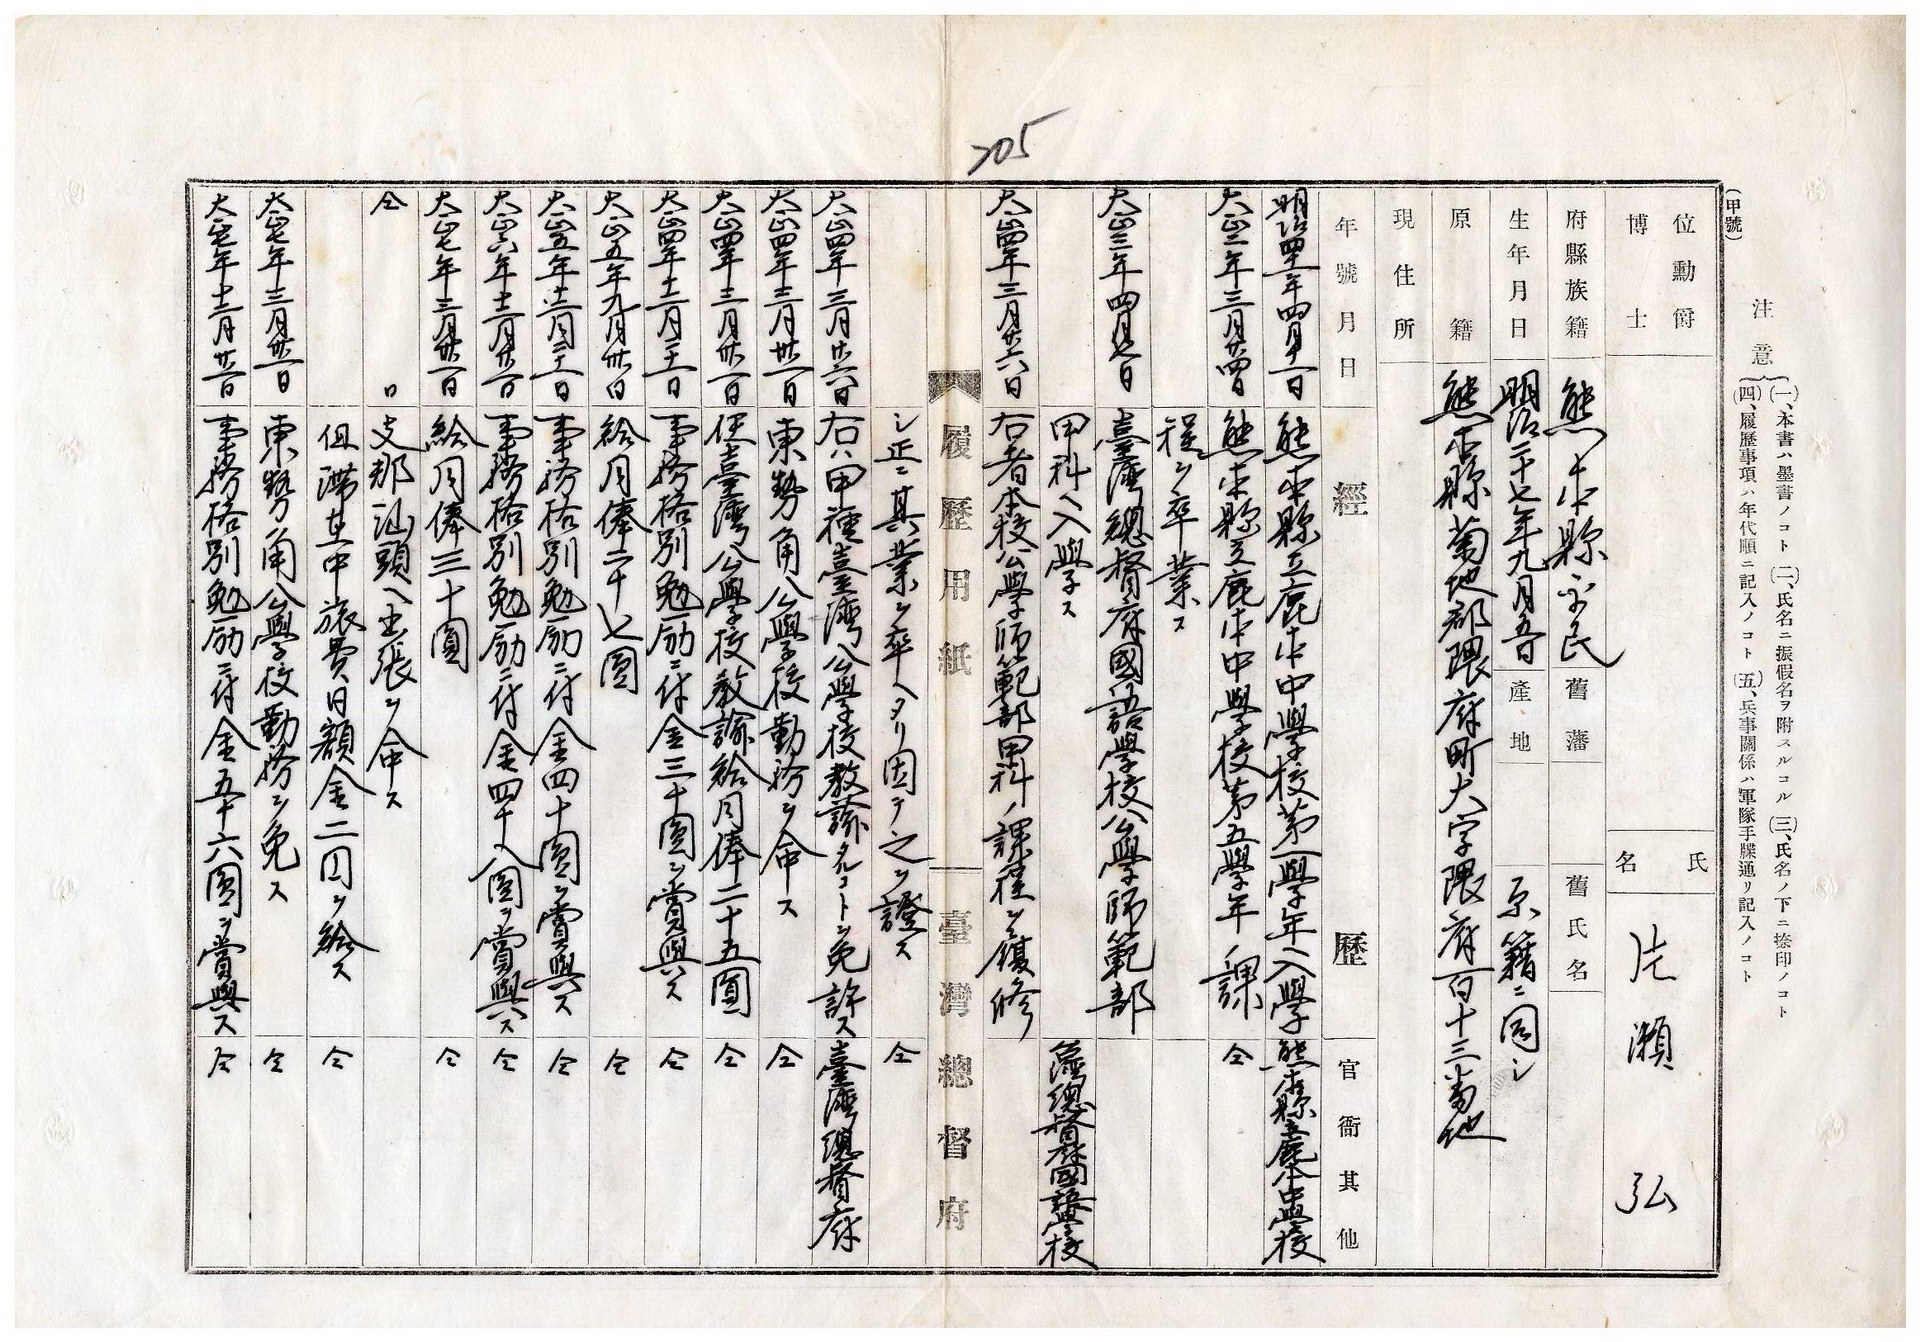 205
(甲號)
注意
(一)、本書ハ墨書ノコト (二)、氏名ニ振假名ヲ附スルコル (三)、氏名ノ下ニ捺印ノコト
(四)、履歷事項ハ年代順ニ記入ノコト (五)、兵事關係ハ軍隊手牒通リ記入ノコト
位勳爵
博士
氏名
片瀨 弘
府縣族籍
熊本縣平民
舊藩
舊氏名
生年月日
明治二十七年九月五日
產地
原籍ニ同シ
原籍
熊本縣菊池郡隈府町大字隈府百十三番地
現住所
年號月日
經歷
官衙其他
明治四十一年四月十一日 熊本縣立鹿本中學校第一學年ヘ入學 熊本縣立鹿本中學校
大正二年三月廿四日 熊本縣立鹿本中學校第五學年ノ課 仝
程ヲ卒業ス
大正三年四月七日 臺灣總督府國語學校公學師範部
甲科ヘ入學ス 臺灣總督府國語學校
大正四年三月廿六日 右者本校公學師範部甲科ノ課程ヲ履修
履歷用紙
臺灣總督府
シ正ニ其業ヲ卒ヘタリ因テ之ヲ證ス 仝
大正四年三月廿六日 右ハ甲種臺灣公學校教諭タルコトヲ免許ス 臺灣總督府
大正四年三月卅一日 東勢角公學校勤務ヲ命ス 仝
大正四年三月卅一日 任臺灣公學校教諭給月俸二十五圓 仝
大正四年十二月二十一日 事務格別勉励ニ付金三十圓ヲ賞與ス 仝
大正五年九月卅日 給月俸二十七圓 仝
大正五年十二月二十一日 事務格別勉励ニ付金四十圓ヲ賞與ス 仝
大正六年十二月廿一日 事務格別勉励ニ付金四十八圓ヲ賞與ス 仝
大正七年三月卅一日 給月俸三十圓 仝
仝 日 支那汕頭ヘ出張ヲ命ス
但滯在中旅費日額金二円ヲ給ス 仝
大正七年三月卅一日 東勢角公學校勤務ヲ免ス 仝
大正七年十二月廿一日 事務格別勉励ニ付金五十六圓ヲ賞與ス 仝